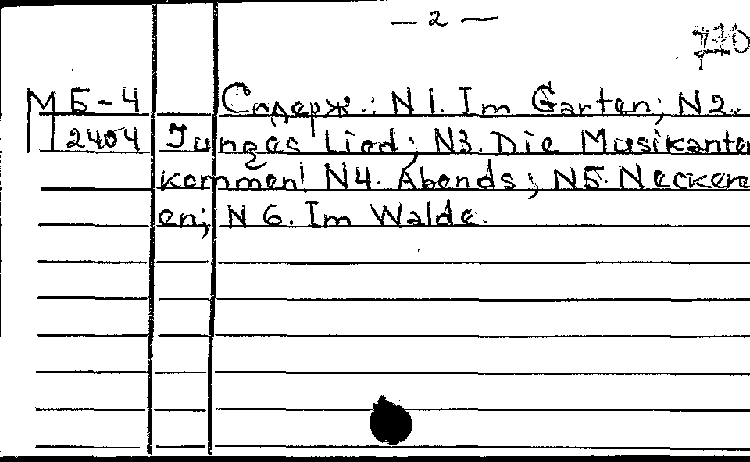 — 2 —
МБ-4 Содерж.: N 1. Im Garten; N 2.
12404 Junges Lied; N3. Die Musikanten
kommen! N4. Abends; N5. Neckere
en; N 6. Im Walde.